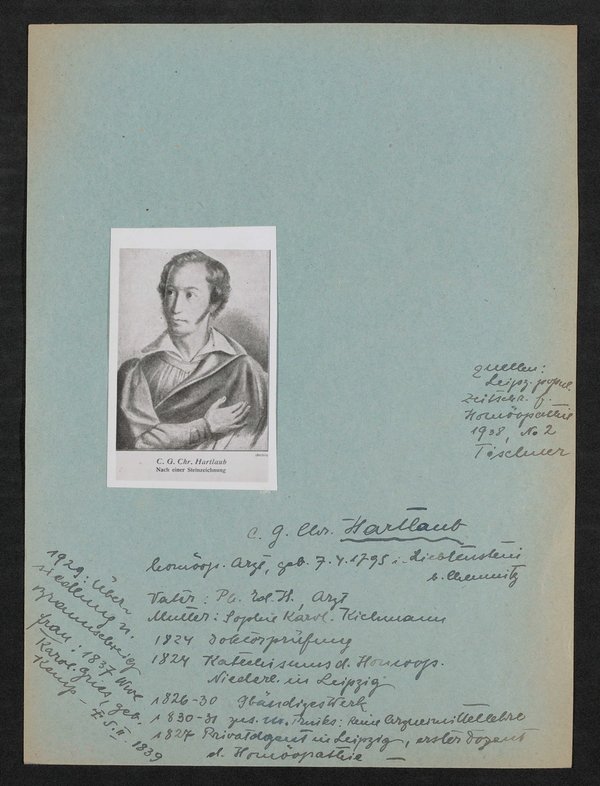 C. G. Chr. Hartlaub
Nach einer Steinzeichnung
Quellen:
Leipz. popul.
Zeitschr. f.
Homöopathie
1938, No 2
Töschner
C. G. Chr. Hartlaub
homöop. Arzt, geb. 7.4.1795 i. Lichtenstein
b. Chemnitz
Vater: Ph. H., Arzt
Mutter: Sophie Karol. Eichmann
1824 Doktorprüfung
1824 Katechismus d. Homöop.
Niederl. in Leipzig
1826-30 9bändiges Werk
1830-31 zus. m. Trinks: Reine Arzneimittellehre
1827 Privatdozent in Leipzig, erster Dozent
d. Homöopathie —
1929: Über-
siedlung n.
Braunschweig
Frau: 1837 Wwe
Karol. geb.
Kamp —
1839